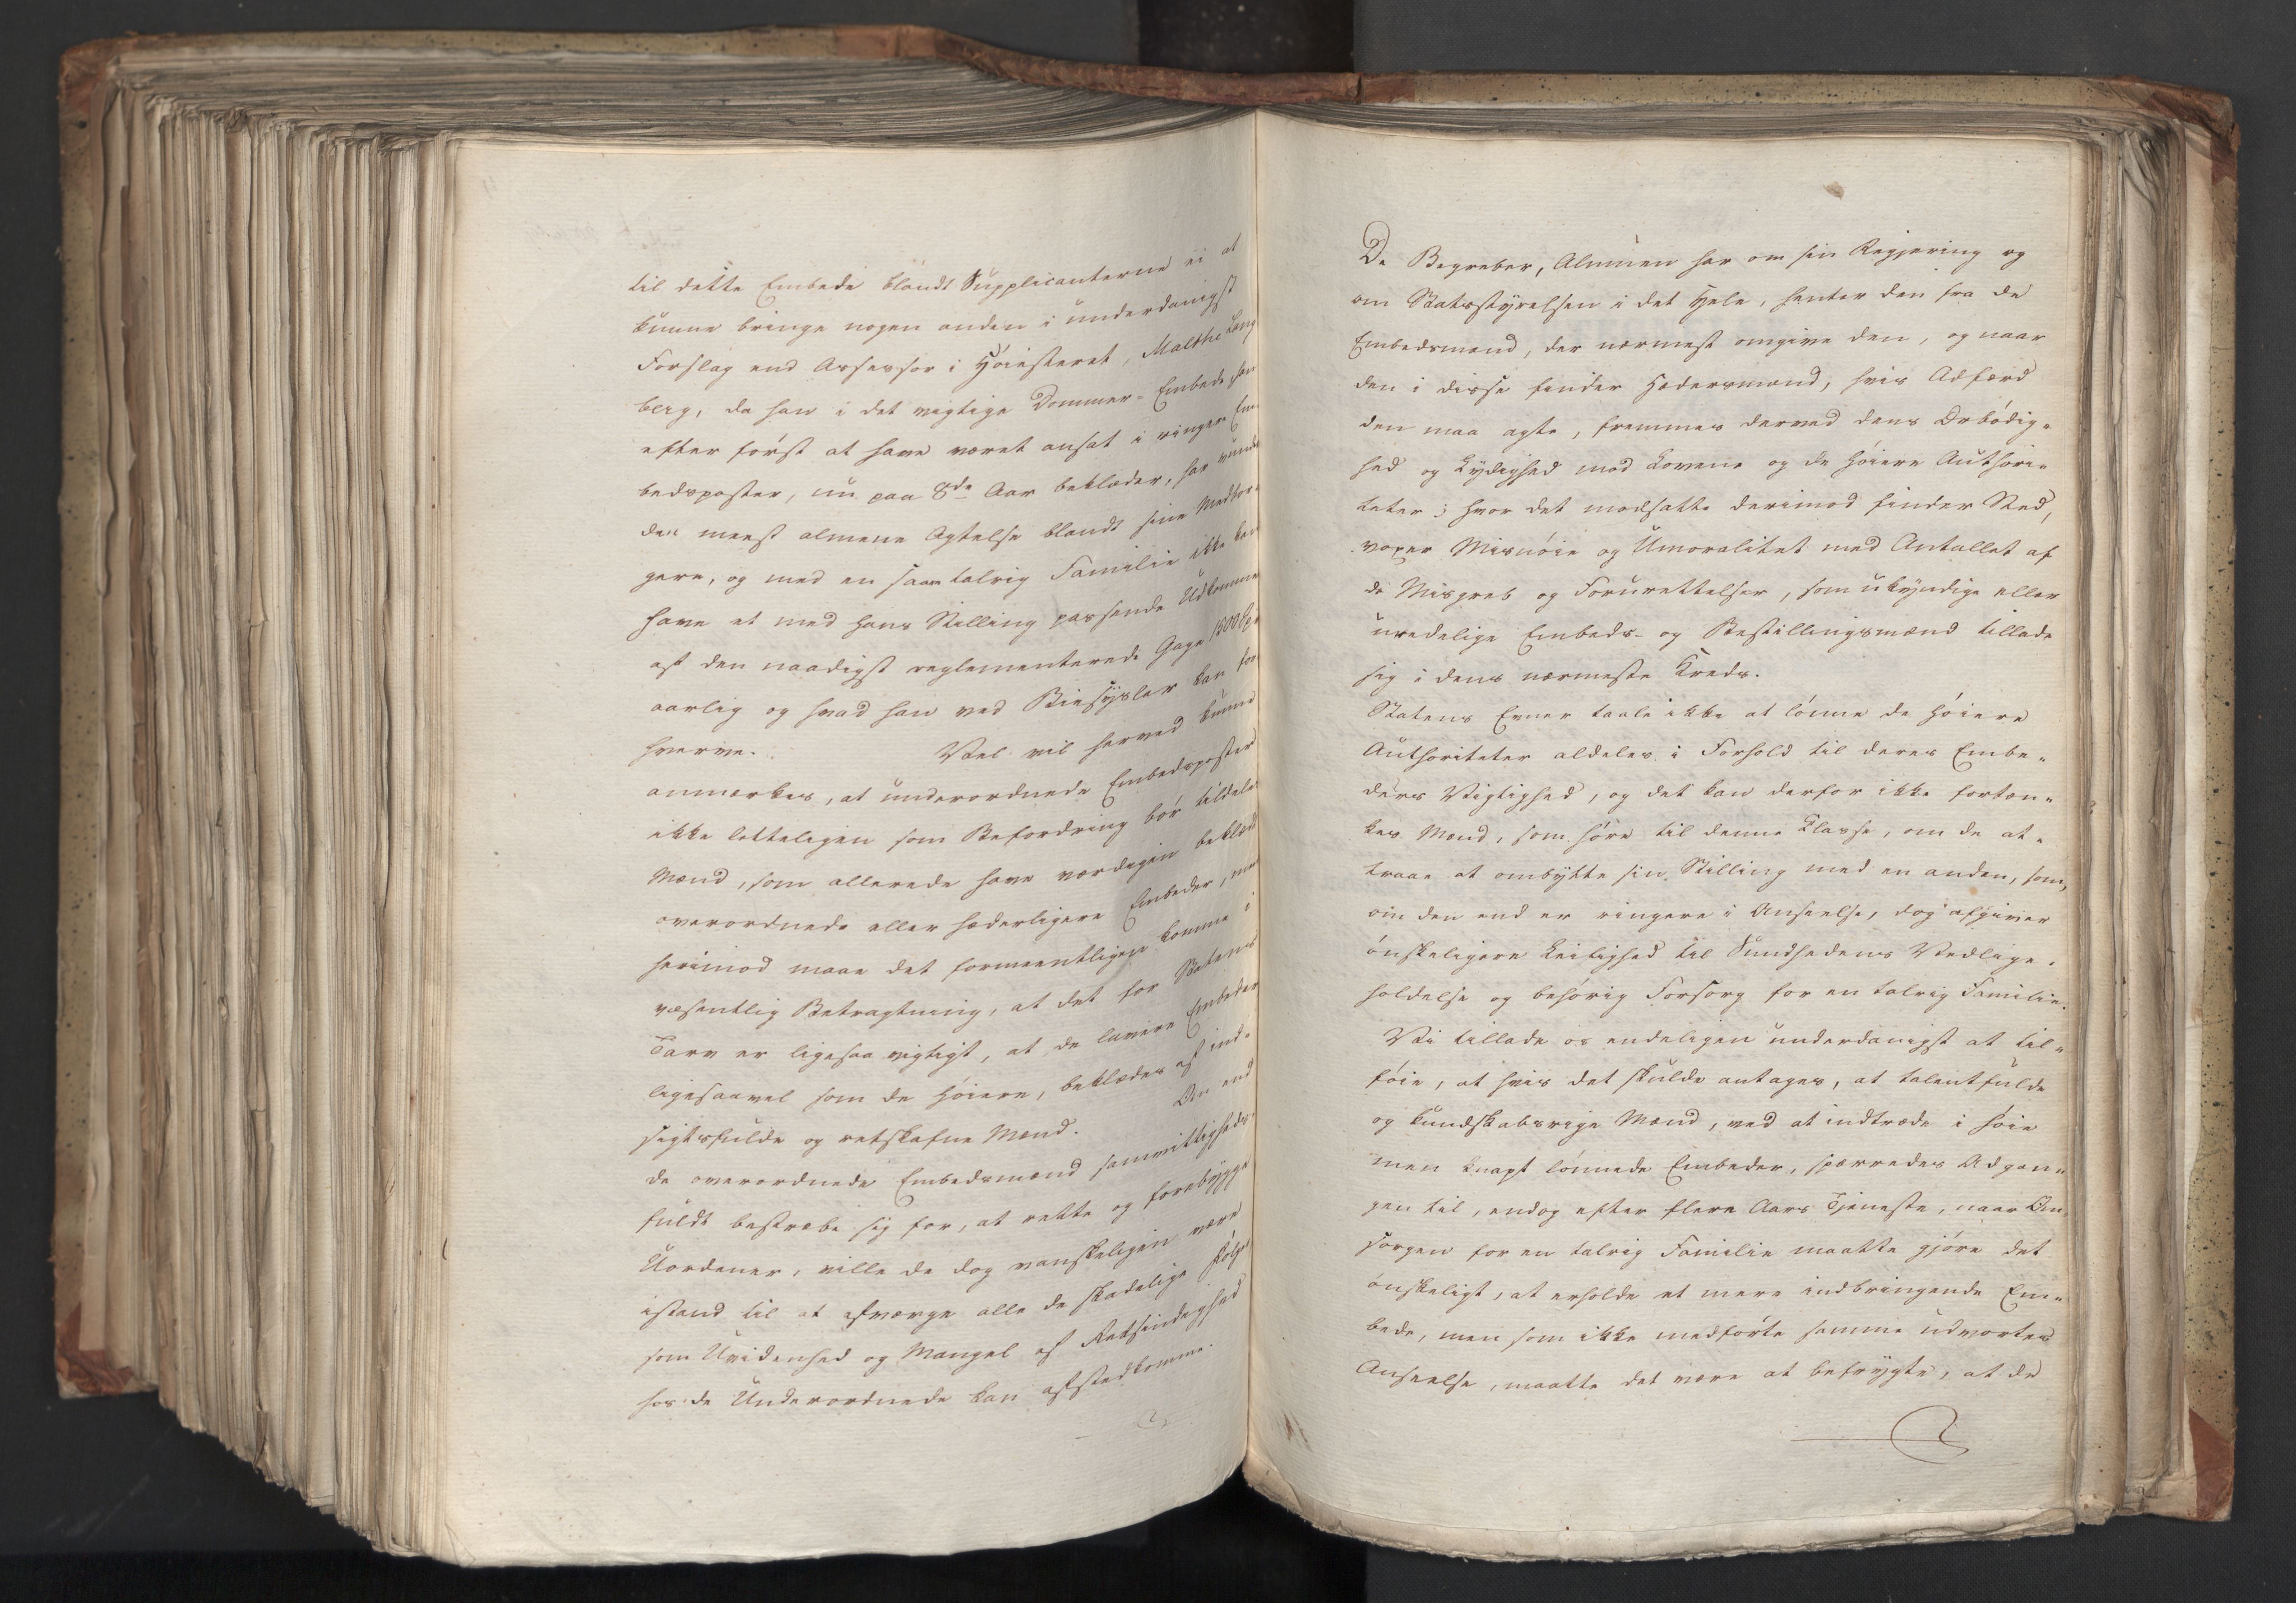 til dette Embede blandt Supplicanterne ei at
kunne bringe nogen anden i underdanigst
Forslag end Assessor i Høiesteret, Malthe Lang
berg, da han i det vigtige Dommer-Embede, han
efter først at have været ansat i ringere Em
bedsposter, nu paa 8de Aar beklæder, har vundet
den meest almene Agtelse blandt sine Medbor-
gere, og med en saare talrig Familie ikke kan
have et med hans Stilling passende Udkomme
af den naadigst reglementerede Gage 1800 Spd
aarlig og hvad han ved Biesysler kan for
hverve. Vel vil herved kunne
anmærkes, at underordnede Embedsposter
ikke letteligen som Befordring bør tildeles
Mænd, som allerede have værdigen beklædt
overordnede eller hæderligere Embeder, men
herimod maae det formeentligen komme i
væsentlig Betragtning, at det for Statens
Tarv er ligesaa vigtigt, at de lavere Embeder
ligesaavel som de høiere, beklædes af ind-
sigtsfulde og retskafne Mænd. Om end
de overordnede Embedsmænd samvittigheds-
fuldt bestræbe sig for, at rette og forebygge
Uordener, ville de dog vanskeligen være
istand til at afværge alle de skadelige Følger
som Uvidenhed og Mangel af Retsindighed
hos de Underordnede kan afstedkomme.
De Begreber, Almuen har om sin Regjering og
om Statsstyrelsen i det Hele, henter den fra de
Embedsmænd, der nærmest omgive den, og naar
den i disse finder Hædersmænd, hvis Adfærd
den maa agte, fremmes derved dens Ærbødig-
hed og Lydighed mod Lovene og de høiere Authori-
teter; hvor det modsatte derimod finder Sted,
voxer Misnøie og Umoralitet med Antallet af
de Misgreb og Forurettelser, som ukyndige eller
uredelige Embeds- og Bestillingsmænd tillade
sig i dens nærmeste Kreds.
Statens Evner taale ikke at lønne de høiere
Authoriteter aldeles i Forhold til deres Embe-
ders Vigtighed, og det kan derfor ikke fortæn-
kes Mænd, som høre til denne Classe, om de at-
traae at ombytte sin Stilling med en anden, som,
om den end er ringere i Anseelse, dog afgiver
ønskeligere Leilighed til Sundhedens Vedlige-
holdelse og behørig Forsorg for en talrig Familie.
Vi tillade os endeligen underdanigst at til-
føie, at hvis det skulde antages, at talentfulde
og kundskabsrige Mænd, ved at indtræde i høie
men knapt lønnede Embeder, spærredes Adgan-
gen til, endog efter flere Aars Tjeneste, naar Om-
sorgen for en talrig Familie maatte gjøre det
ønskeligt, at erholde et mere indbringende Em-
bede, men som ikke medførte samme udvortes
Anseelse, maatte det være at befrygte, at de